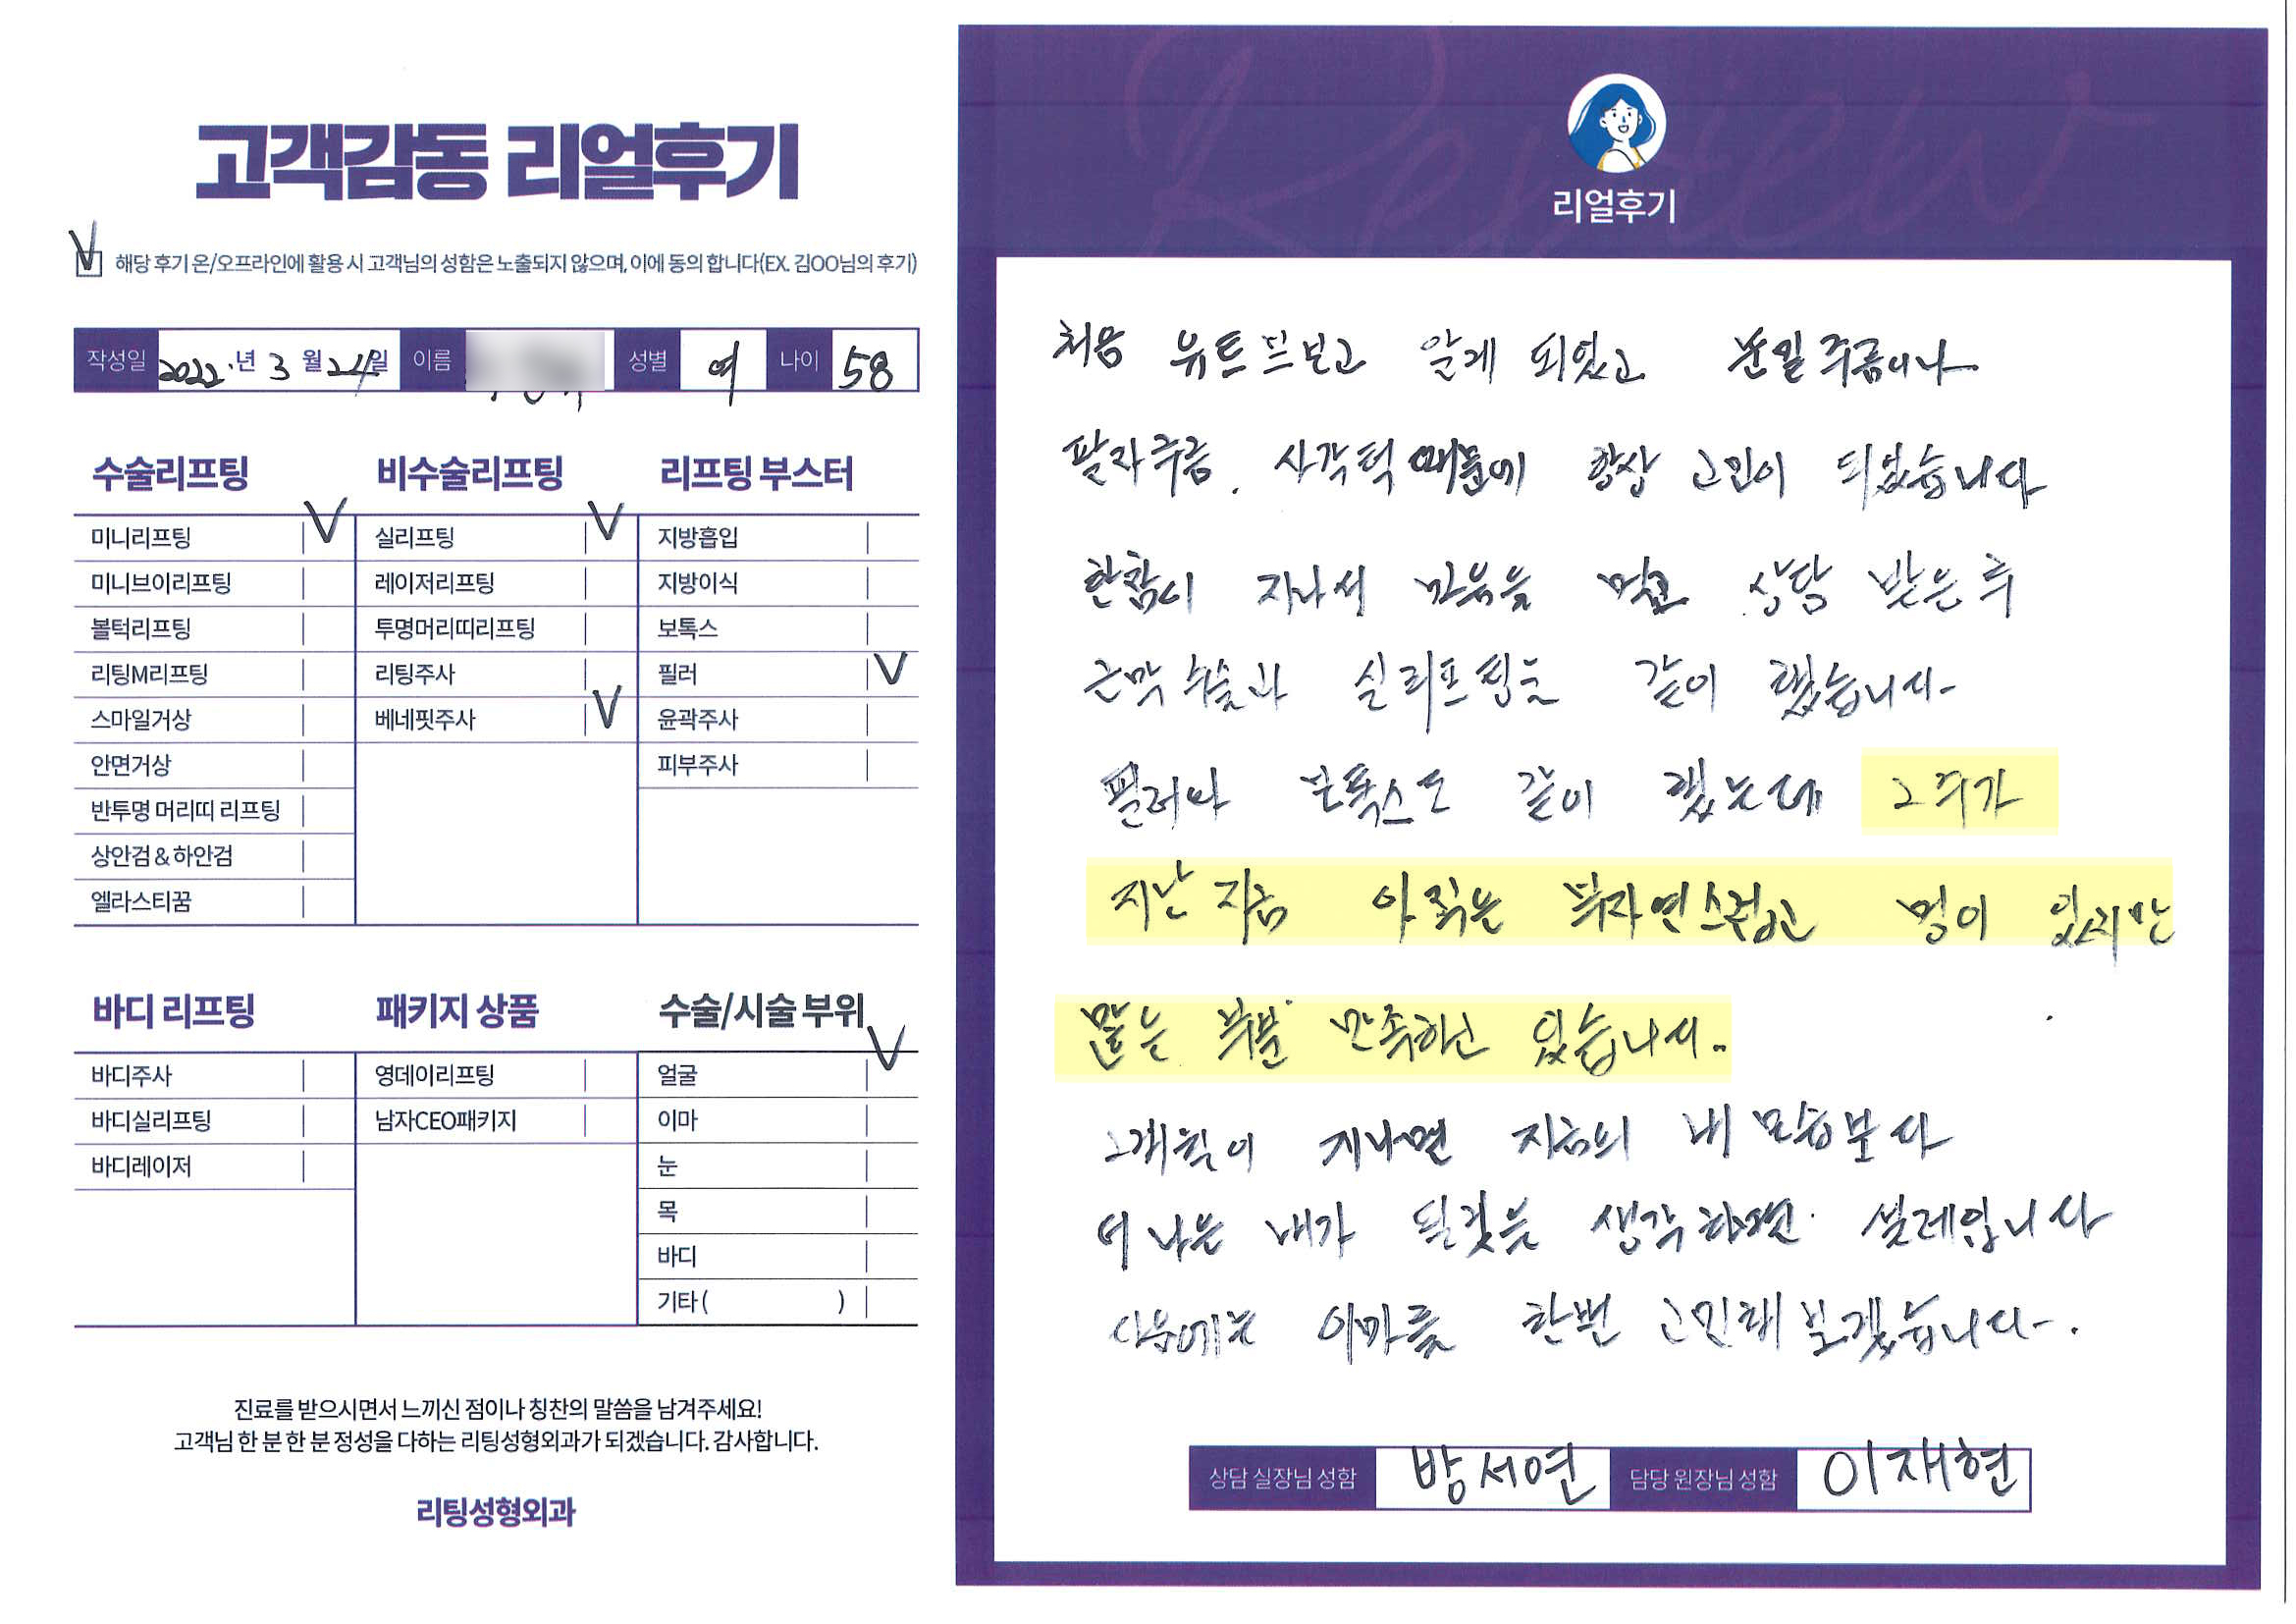 고객감동 리얼후기
V 해당 후기 온/오프라인에 활용 시 고객님의 성함은 노출되지 않으며, 이에 동의 합니다(EX. 김OO님의 후기)
작성일 2022.년 3월 24일 이름 성별 여 나이 58
수술리프팅
미니리프팅 V
미니브이리프팅
볼턱리프팅
리팅M리프팅
스마일거상
안면거상
반투명 머리띠 리프팅
상안검 & 하안검
엘라스티꿈
비수술리프팅
실리프팅 V
레이저리프팅
투명머리띠리프팅
리팅주사
베네핏주사 V
리프팅 부스터
지방흡입
지방이식
보톡스
필러 V
윤곽주사
피부주사
바디 리프팅
바디주사
바디실리프팅
바디레이저
패키지 상품
영데이리프팅
남자CEO패키지
수술/시술 부위
얼굴 V
이마
눈
목
바디
기타 ( )
진료를 받으시면서 느끼신 점이나 칭찬의 말씀을 남겨주세요!
고객님 한 분 한 분 정성을 다하는 리팅성형외과가 되겠습니다. 감사합니다.
리팅성형외과
Review
리얼후기
처음 유트브보고 알게 되었고 눈밑주름이나
팔자주름. 사각턱 때문에 항상 고민이 되었습니다
한참이 지나서 마음을 먹고 상담 받은후
근막수술과 실리프팅을 같이 했습니다-
필러와 보톡스도 같이 했는데 2주가
지난 지금 아직은 부자연스럽고 멍이 있지만
많은 부분 만족하고 있습니다..
2개월이 지나면 지금의 내 모습보다
더 나은 내가 될것을 생각하면 설레입니다
다음에는 이마를 한번 고민해보겠습니다-.
상담 실장님 성함 방서연 담당 원장님 성함 이재현